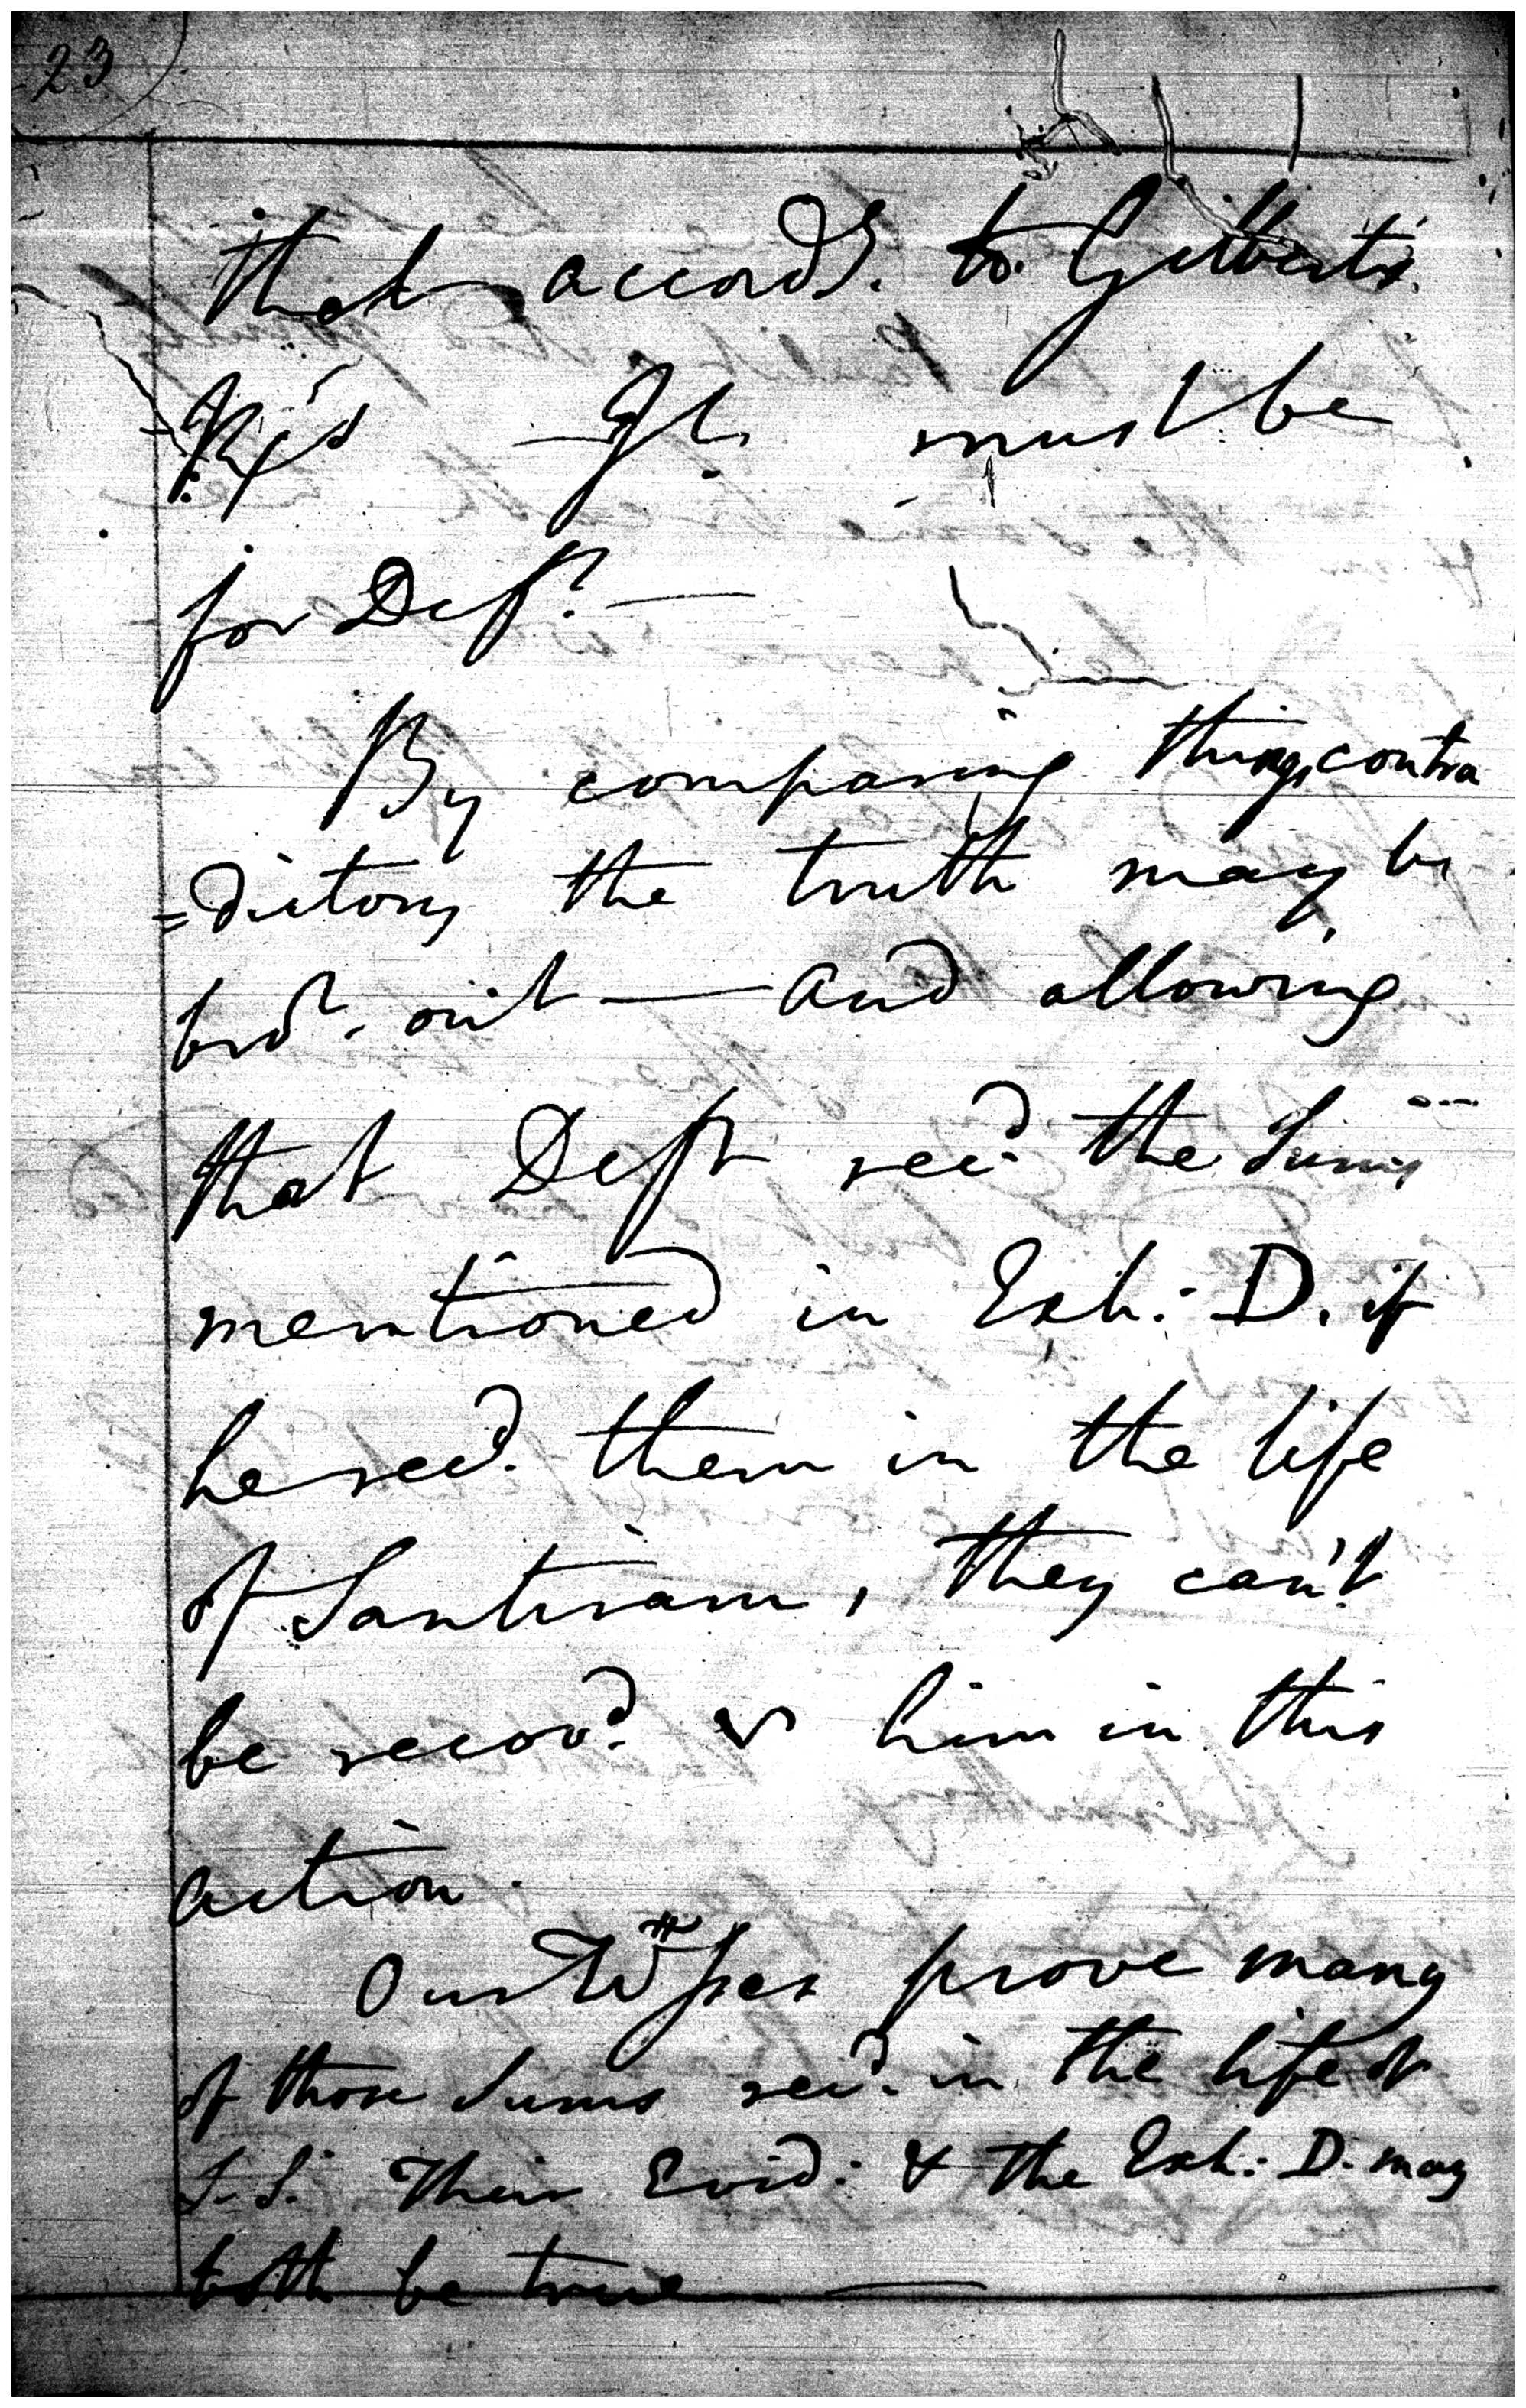 23
that accord.g to Gilbert's
Rep.s Jt. must be
for Deft. —
By comparing things contra
=dictory the truth may be
brot. out — and allowing
that Deft recd. the Sums
mentioned in Exh: D. if
he recd. them in the life
of Santiram, they can't
be recovd. v him in this
action.
Our Wittsses prove many
of those Sums recd. in the life of
S.S. Their Evid: & the Exh: D. may
both be true —